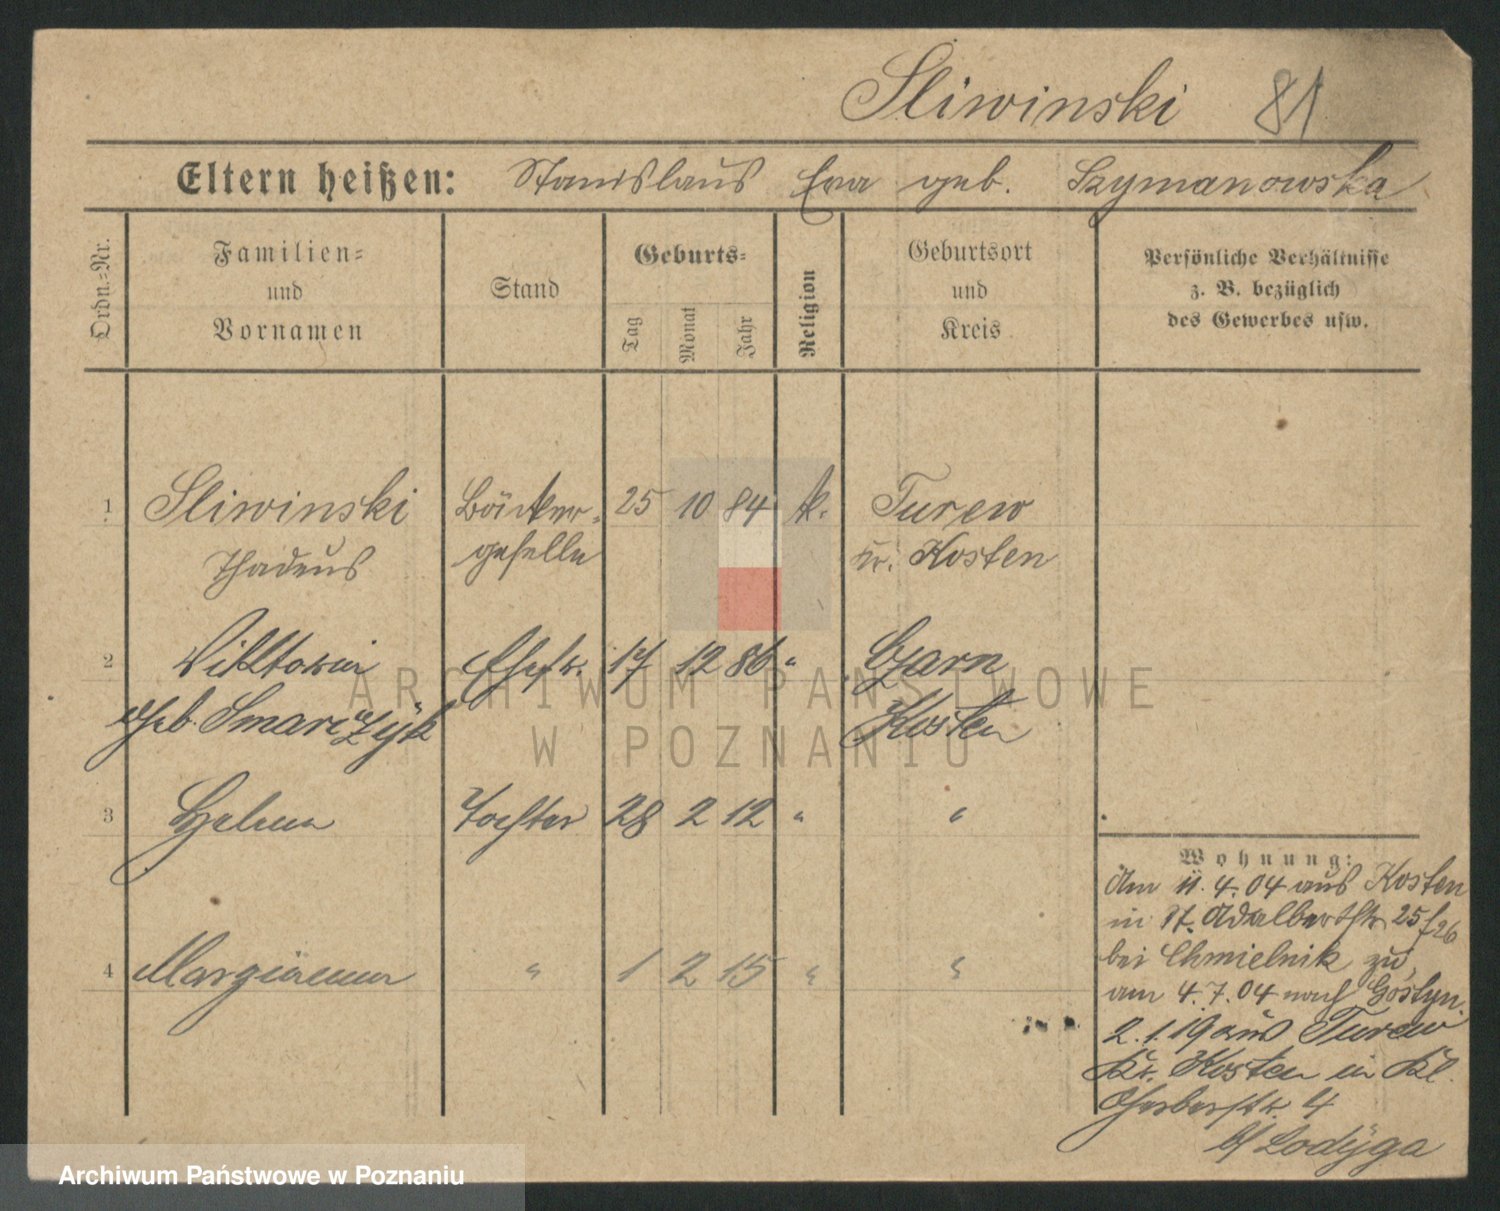 Sliwinski 81
Eltern heißen: Stanislaus Eva geb. Szymanowska
Ordn.-Nr.
Familien-
und
Vornamen
Stand
Geburts-
Tag
Monat
Jahr
Religion
Geburtsort
und
Kreis
Persönliche Verhältnisse
z. B. bezüglich
des Gewerbes usw.
1 Sliwinski Bäcker- 25 10 84 k. Turew
Thadeus geselle Kr. Kosten
2 Viktoria Ehefr. 17 12 86 "
geb. Kosten
3 Helena Tochter 28 2 12 " "
4 " 1 2 15 " "
Wohnung:
Am 11.4.04 aus Kosten
in St. Adalbertstr. 25/26
bei Chmielnik zu
am 4.7.04 nach Gostyn.
2.1.19 aus Turew
Kr. Kosten in Kl.
Gerberstr. 4
b/ Lodÿga
ARCHIWUM PAŃSTWOWE
W POZNANIU
Archiwum Państwowe w Poznaniu